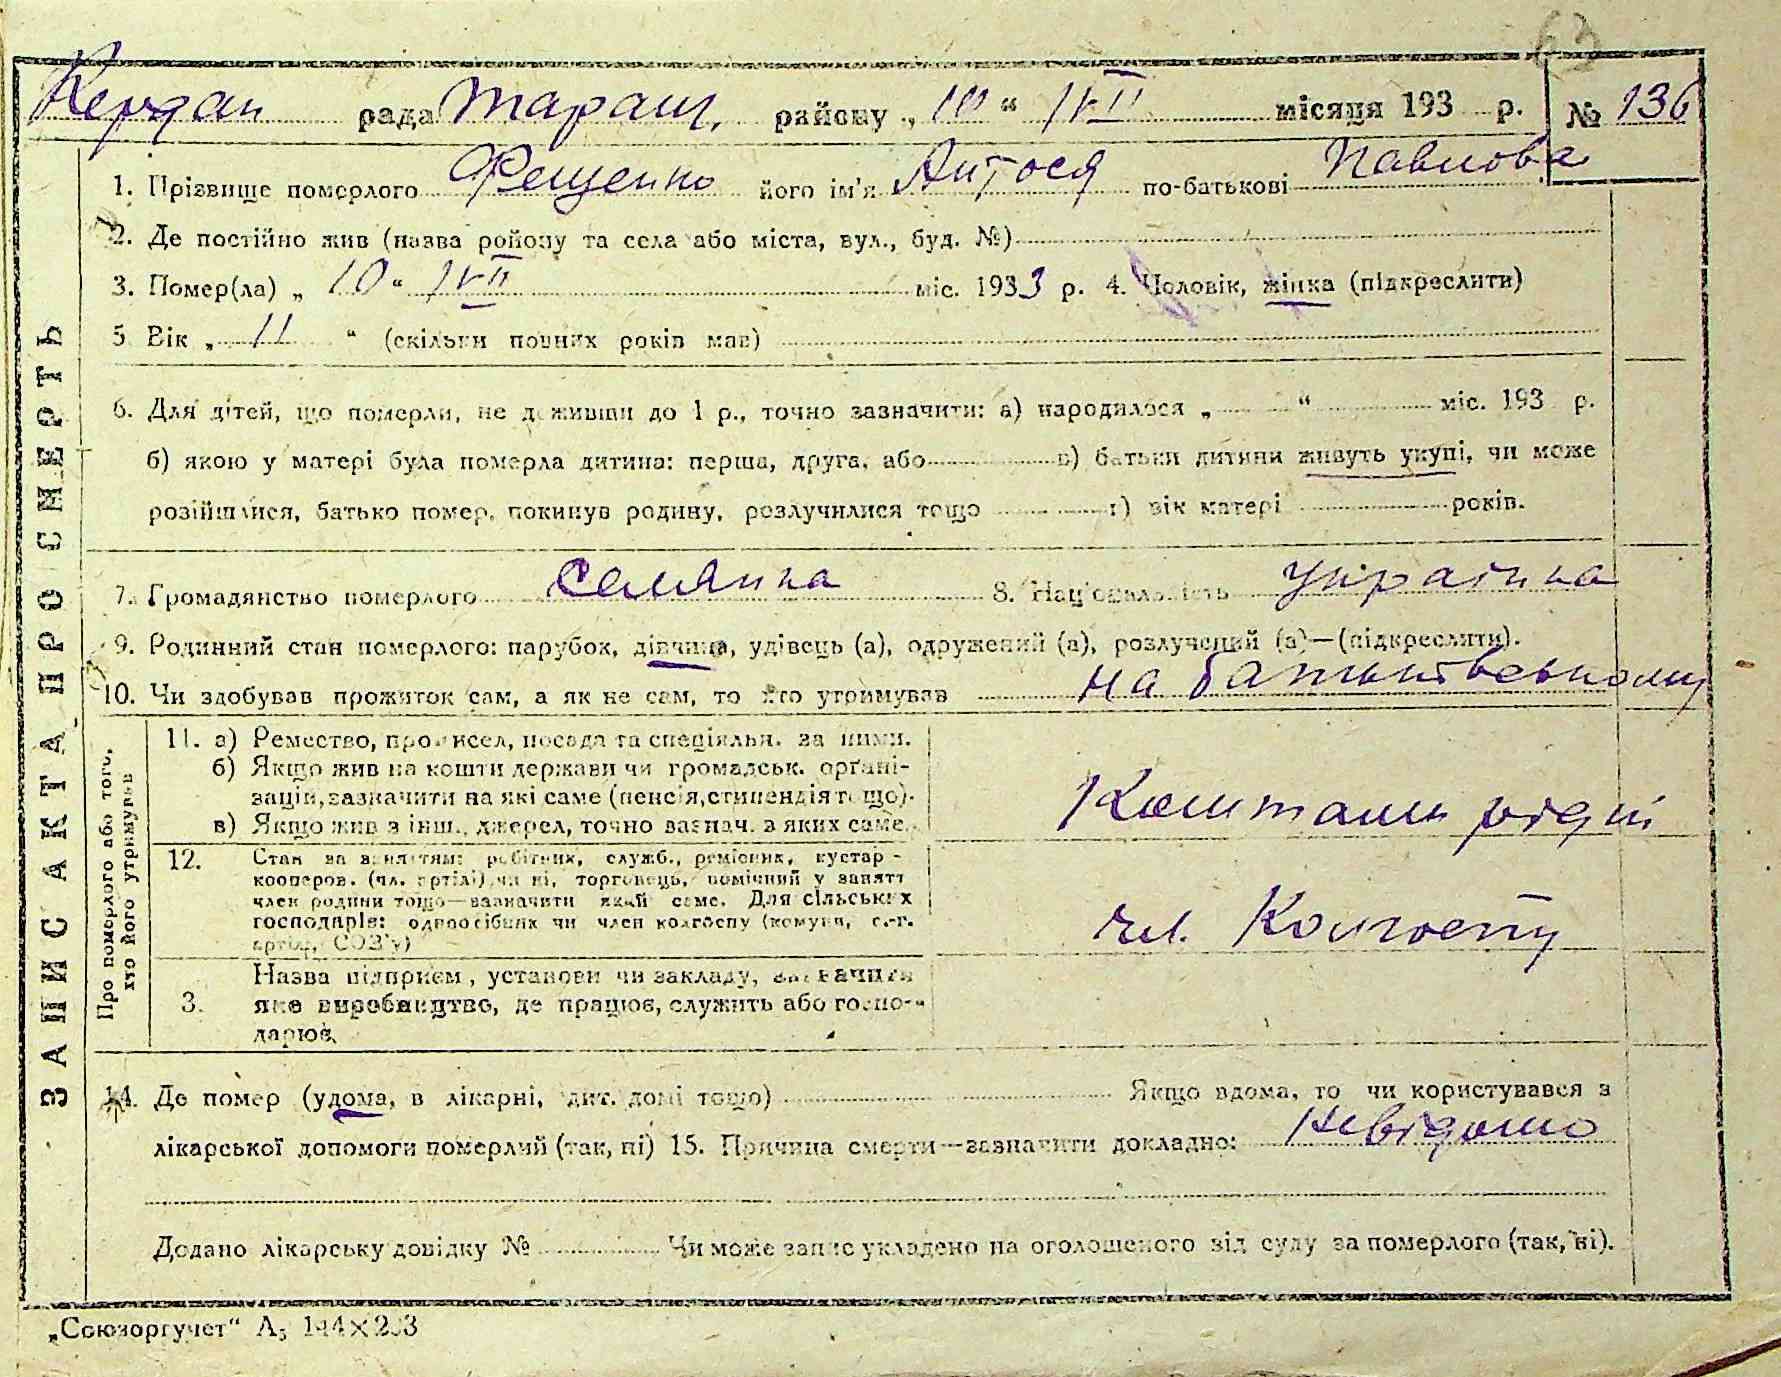 63
Кердан рада Таращ. району „ 10 “ IVII місяця 193 р. № 136
1. Прізвище померлого Фещенко його ім'я Антося по-батькові Павлова
2. Де постійно жив (назва ройону та села або міста, вул., буд. №)
3. Помер(ла) „ 10 “ IVII міс. 1933 р. 4. Чоловік, жінка (підкреслити)
5 Вік „ 11 “ (скільки повних років мав)
6. Для дітей, що померли, не доживши до 1 р., точно зазначити: а) народилося „ “ міс. 193 р.
б) якою у матері була померла дитина: перша, друга, або в) батьки дитини живуть укупі, чи може
розійшлися, батько помер, покинув родину, розлучилися тощо г) вік матері років.
7. Громадянство померлого селянка 8. Національність Українка
9. Родинний стан померлого: парубок, дівчина, удівець (а), одружений (а), розлучений (а)—(підкреслити).
10. Чи здобував прожиток сам, а як не сам, то хто утримував на батьківському
ЗАПИС АКТА ПРО СМЕРТЬ
Про померлого або того, хто його утримував
11. а) Ремество, промисел, посада та спеціяльн. за ними.
б) Якщо жив на кошти держави чи громадськ. орґані-
зацій, зазначити на які саме (пенсія, стипендія тощо).
в) Якщо жив з інш., джерел, точно зазнач. з яких саме.
Коштами рідні
12. Стан за заняттям: робітник, служб., ремісник, кустар -
кооперов. (чл. артілі) чи ні, торговець, помічний у занятт
член родини тощо—зазначити який саме. Для сільських
господарів: одноосібник чи член колгоспу (комуни, с.-г.
артілі, СОЗ'у)
чл. Колгоспу
3. Назва підприєм, установи чи закладу, зазначити
яке виробництво, де працює, служить або госпо-
дарює,
14. Де помер (удома, в лікарні, дит. домі тощо) Якщо вдома, то чи користувався з
лікарської допомоги померлий (так, ні) 15. Причина смерти—зазначити докладно: Невідомо
Додано лікарську довідку № Чи може запис укладено на оголошеного від суду за померлого (так, ні).
„Союзоргучет“ А5